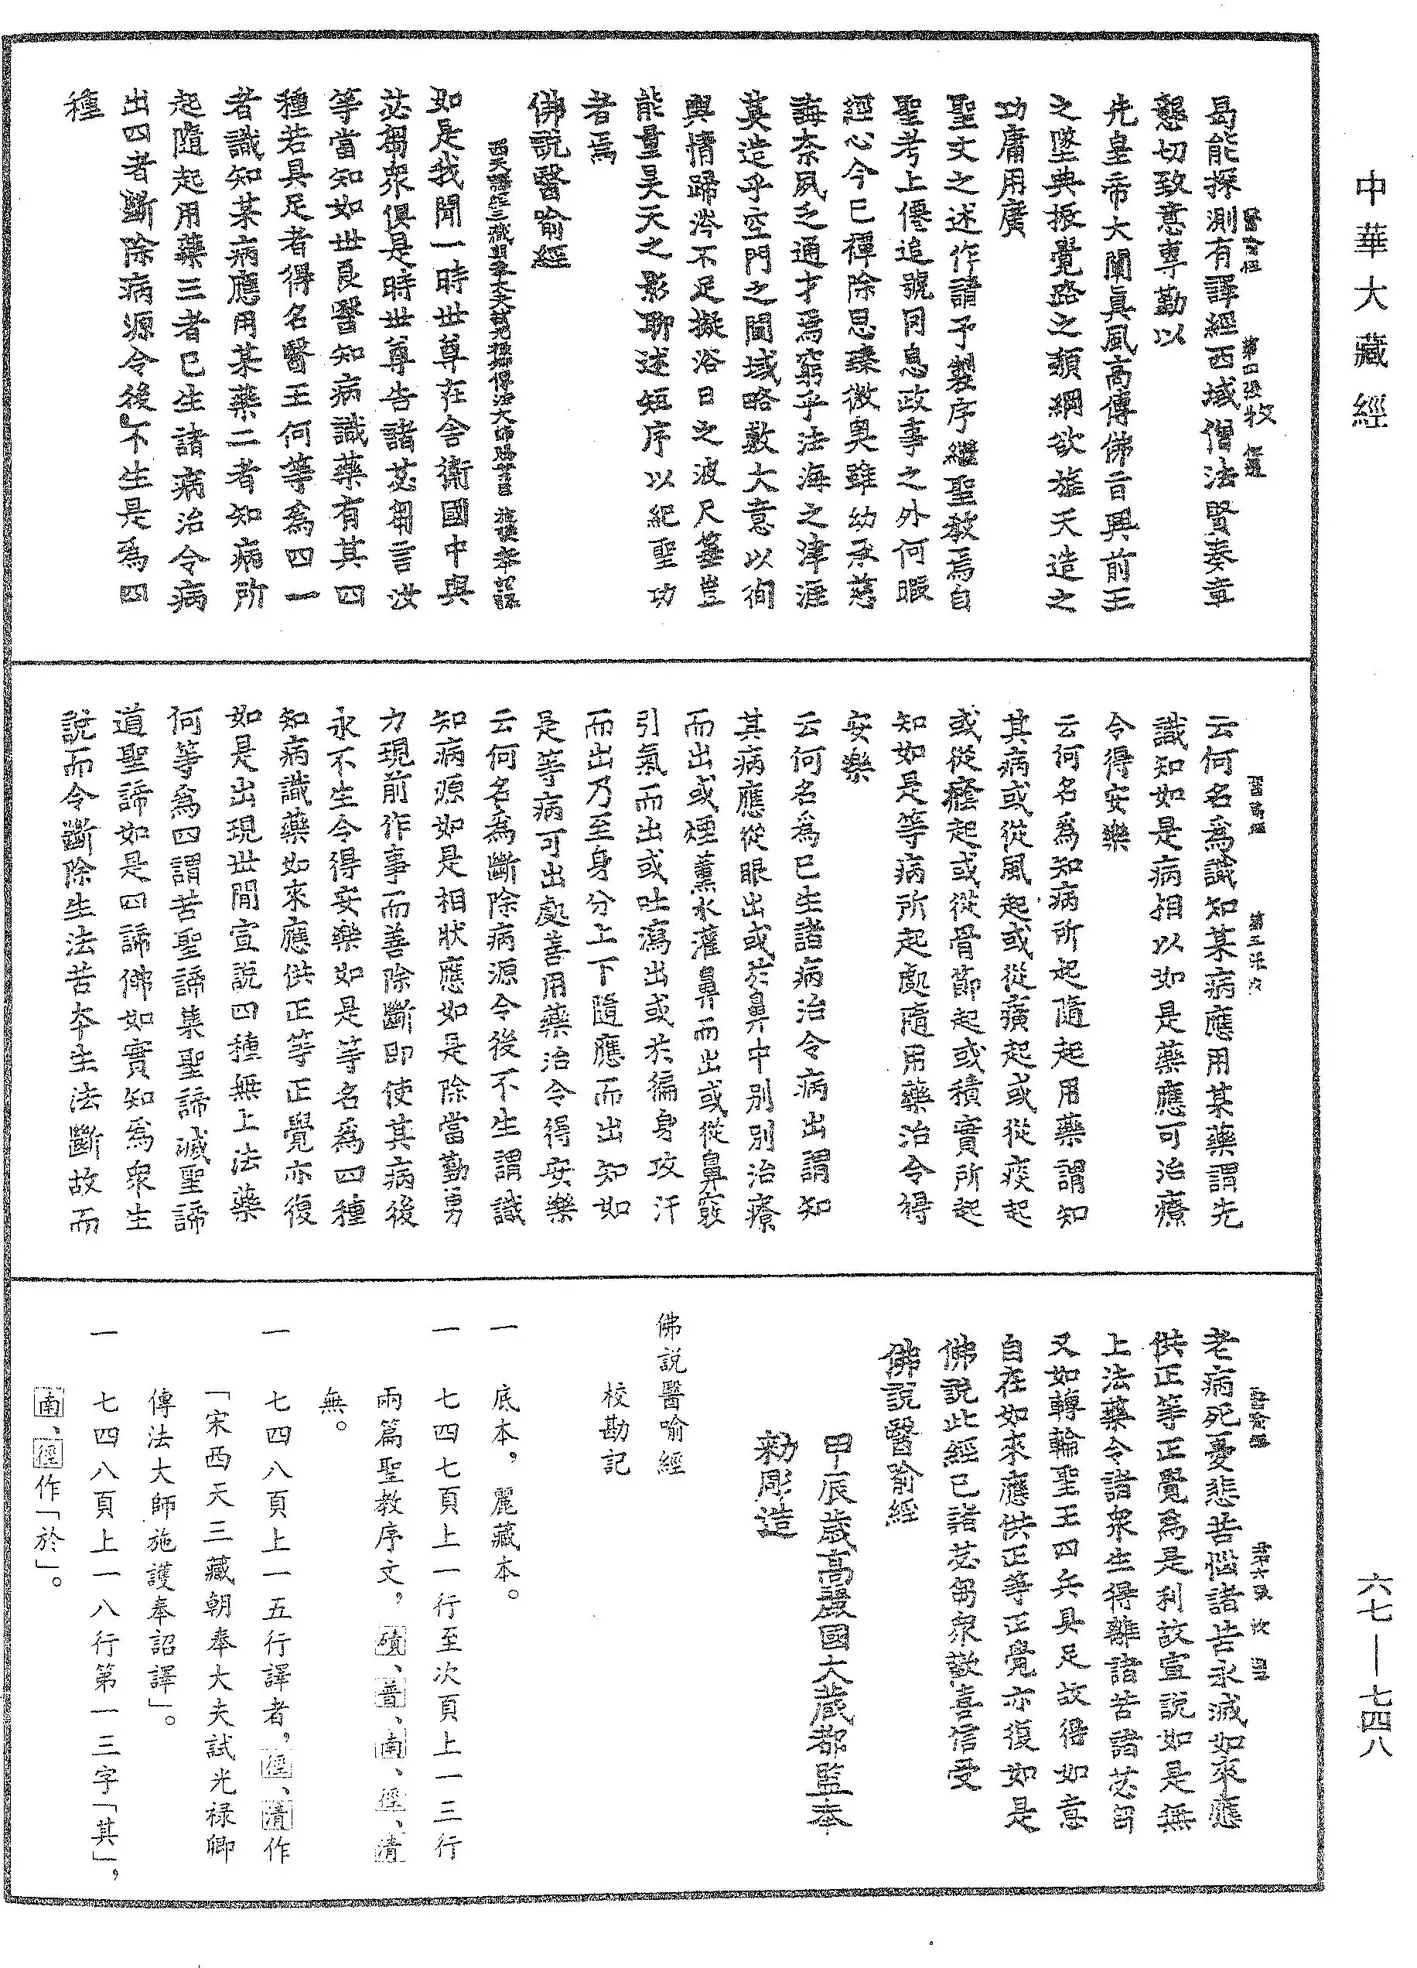 中華大藏經
六七—七四八
曷能探測有譯經西域僧法賢奏章
懇切致意專勤以
先皇帝大闡真風高傳佛旨興前王
之墜典振覺路之頹綱欲旌天造之
功庸用廣
聖文之述作請予製序繼聖教焉自
聖考上僊追號罔息政事之外何暇
經心今已禫除思臻微奧雖幼承慈
誨奈夙乏通才焉窮乎法海之津涯
莫造乎空門之閫域略敷大意以徇
輿情歸涔不足擬浴日之波尺箠豈
能量昊天之影聊述短序以紀聖功
者焉
佛說醫喻經
西天譯經三藏朝奉大夫試光祿卿傳法大師賜紫臣施護奉詔譯
如是我聞一時世尊在舍衛國中與
苾芻衆俱是時世尊告諸苾芻言汝
等當知如世良醫知病識藥有其四
種若具足者得名醫王何等爲四一
者識知某病應用某藥二者知病所
起隨起用藥三者已生諸病治令病
出四者斷除病源令後不生是爲四
種
醫喻經
云何名爲識知某病應用某藥謂先
識知如是病相以如是藥應可治療
令得安樂
云何名爲知病所起隨起用藥謂知
其病或從風起或從㿀起或從痰起
或從癊起或從骨節起或積實所起
知如是等病所起處隨用藥治令得
安樂
云何名爲已生諸病治令病出謂知
其病應從眼出或於鼻中別別治療
而出或煙薰水灌鼻而出或從鼻竅
引氣而出或吐瀉出或於徧身攻汗
而出乃至身分上下隨應而出知如
是等病可出處善用藥治令得安樂
云何名爲斷除病源令後不生謂識
知病源如是相狀應如是除當勤勇
力現前作事而善除斷即使其病後
永不生令得安樂如是等名爲四種
知病識藥如來應供正等正覺亦復
如是出現世間宣說四種無上法藥
何等爲四謂苦聖諦集聖諦滅聖諦
道聖諦如是四諦佛如實知爲衆生
說而令斷除生法苦本生法斷故而
醫喻經
老病死憂悲苦惱諸苦永滅如來應
供正等正覺爲是利故宣說如是無
上法藥令諸衆生得離諸苦諸苾芻
又如轉輪聖王四兵具足故得如意
自在如來應供正等正覺亦復如是
佛說此經已諸苾芻衆歡喜信受
佛說醫喻經
甲辰歲高麗國大藏都監奉
勑彫造
佛說醫喻經
校勘記
一 底本，麗藏本。
一 七四七頁上一行至次頁上一三行
兩篇聖教序文，磧、普、南、徑、清
無。
一 七四八頁上一五行譯者，徑、清作
「宋西天三藏朝奉大夫試光祿卿
傳法大師施護奉詔譯」。
一 七四八頁上一八行第一三字「其」，
南、徑作「於」。